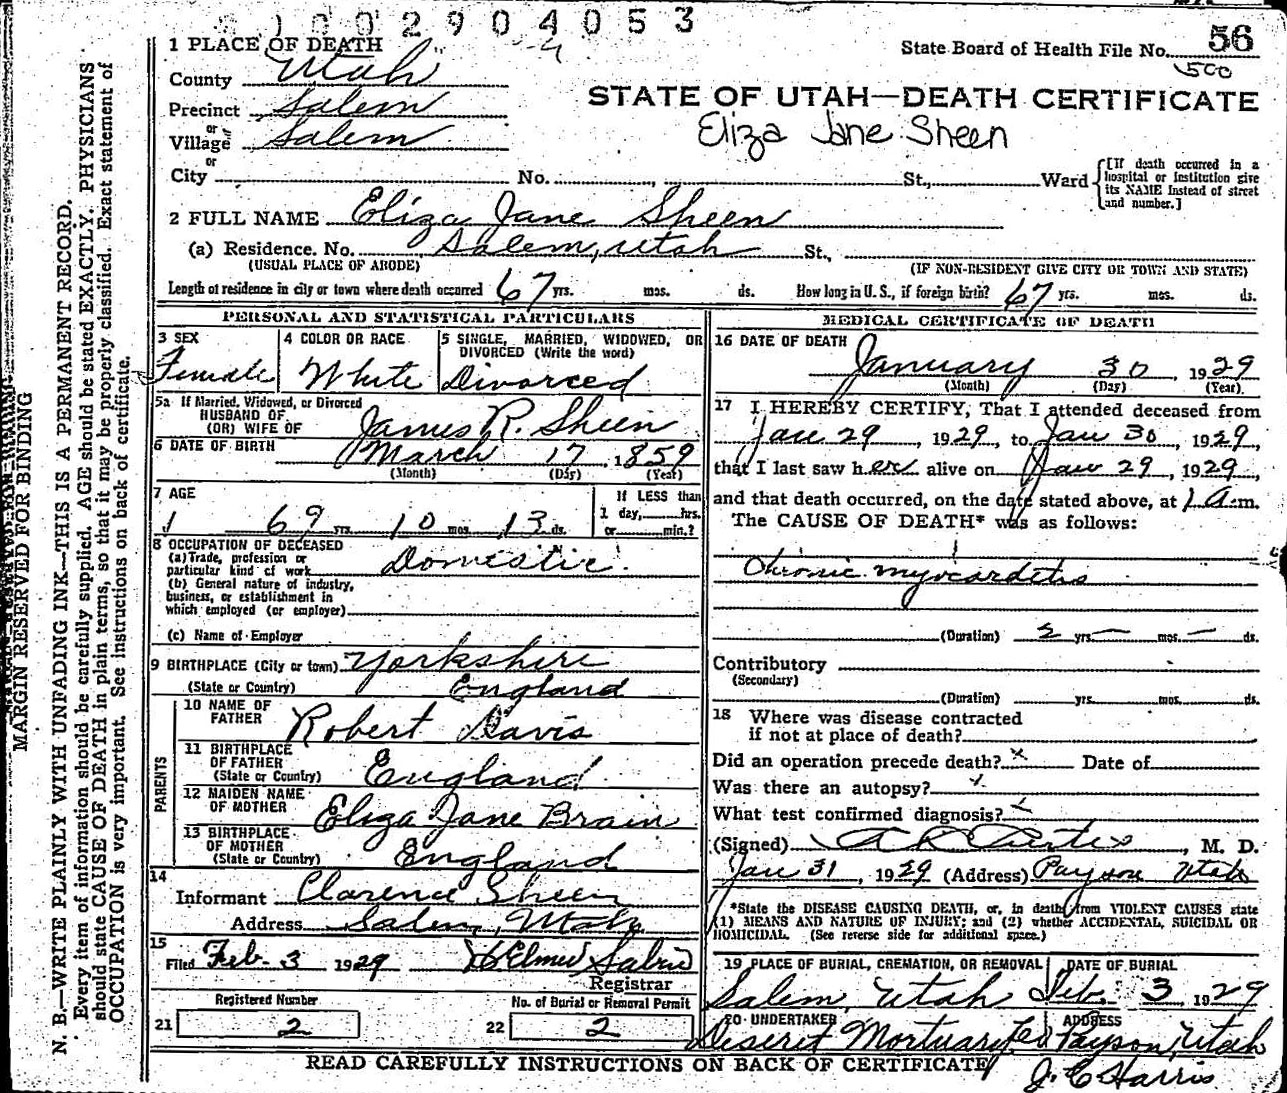 1002904053
State Board of Health File No. 56
500
STATE OF UTAH—DEATH CERTIFICATE
Eliza Jane Sheen
1 PLACE OF DEATH
County Utah
Precinct Salem
or
Village Salem
or
City No. , St., Ward
[If death occurred in a
hospital or institution give
its NAME instead of street
and number.]
2 FULL NAME Eliza Jane Sheen
(a) Residence. No. Salem, Utah St.,
(USUAL PLACE OF ABODE) (IF NON-RESIDENT GIVE CITY OR TOWN AND STATE)
Length of residence in city or town where death occurred 67 yrs. mos. ds. How long in U. S., if foreign birth? 67 yrs. mos. ds.
PERSONAL AND STATISTICAL PARTICULARS
3 SEX
Female
4 COLOR OR RACE
White
5 SINGLE, MARRIED, WIDOWED, OR
DIVORCED (Write the word)
Divorced
5a If Married, Widowed, or Divorced
HUSBAND OF
(OR) WIFE OF James R. Sheen
6 DATE OF BIRTH March 17, 1859
(Month) (Day) (Year)
7 AGE
69 yrs. 10 mos. 13 ds.
If LESS than
1 day, hrs.
or min.?
8 OCCUPATION OF DECEASED
(a) Trade, profession or
particular kind of work Domestic
(b) General nature of industry,
business, or establishment in
which employed (or employer)
(c) Name of Employer
9 BIRTHPLACE (City or town) Yorkshire
(State or Country) England
PARENTS
10 NAME OF
FATHER Robert Davis
11 BIRTHPLACE
OF FATHER
(State or Country) England
12 MAIDEN NAME
OF MOTHER Eliza Jane Brain
13 BIRTHPLACE
OF MOTHER
(State or Country) England
14
Informant Clarence Sheen
Address Salem, Utah
15
Filed Feb. 3 1929 Elmer
Registrar
Registered Number
21 2
No. of Burial or Removal Permit
22 2
MEDICAL CERTIFICATE OF DEATH
16 DATE OF DEATH
January 30, 1929
(Month) (Day) (Year)
17 I HEREBY CERTIFY, That I attended deceased from
Jan 29, 1929, to Jan 30, 1929,
that I last saw her alive on Jan 29, 1929,
and that death occurred, on the date stated above, at 1 A.m.
The CAUSE OF DEATH* was as follows:
Chronic myocarditis
(Duration) 2 yrs. — mos. — ds.
Contributory
(Secondary)
(Duration) yrs. mos. ds.
18 Where was disease contracted
if not at place of death?
Did an operation precede death? x Date of
Was there an autopsy? x
What test confirmed diagnosis? x
(Signed) , M. D.
Jan 31, 1929 (Address) Payson Utah
*State the DISEASE CAUSING DEATH, or, in death from VIOLENT CAUSES state
(1) MEANS AND NATURE OF INJURY; and (2) whether ACCIDENTAL, SUICIDAL OR
HOMICIDAL. (See reverse side for additional space.)
19 PLACE OF BURIAL, CREMATION, OR REMOVAL
Salem, Utah
DATE OF BURIAL
Feb. 3, 1929
20 UNDERTAKER
Deseret Mortuary Co
ADDRESS
Payson, Utah
J. E. Harris
READ CAREFULLY INSTRUCTIONS ON BACK OF CERTIFICATE
MARGIN RESERVED FOR BINDING
N. B.—WRITE PLAINLY WITH UNFADING INK—THIS IS A PERMANENT RECORD.
Every item of information should be carefully supplied. AGE should be stated EXACTLY. PHYSICIANS
should state CAUSE OF DEATH in plain terms, so that it may be properly classified. Exact statement of
OCCUPATION is very important. See instructions on back of certificate.